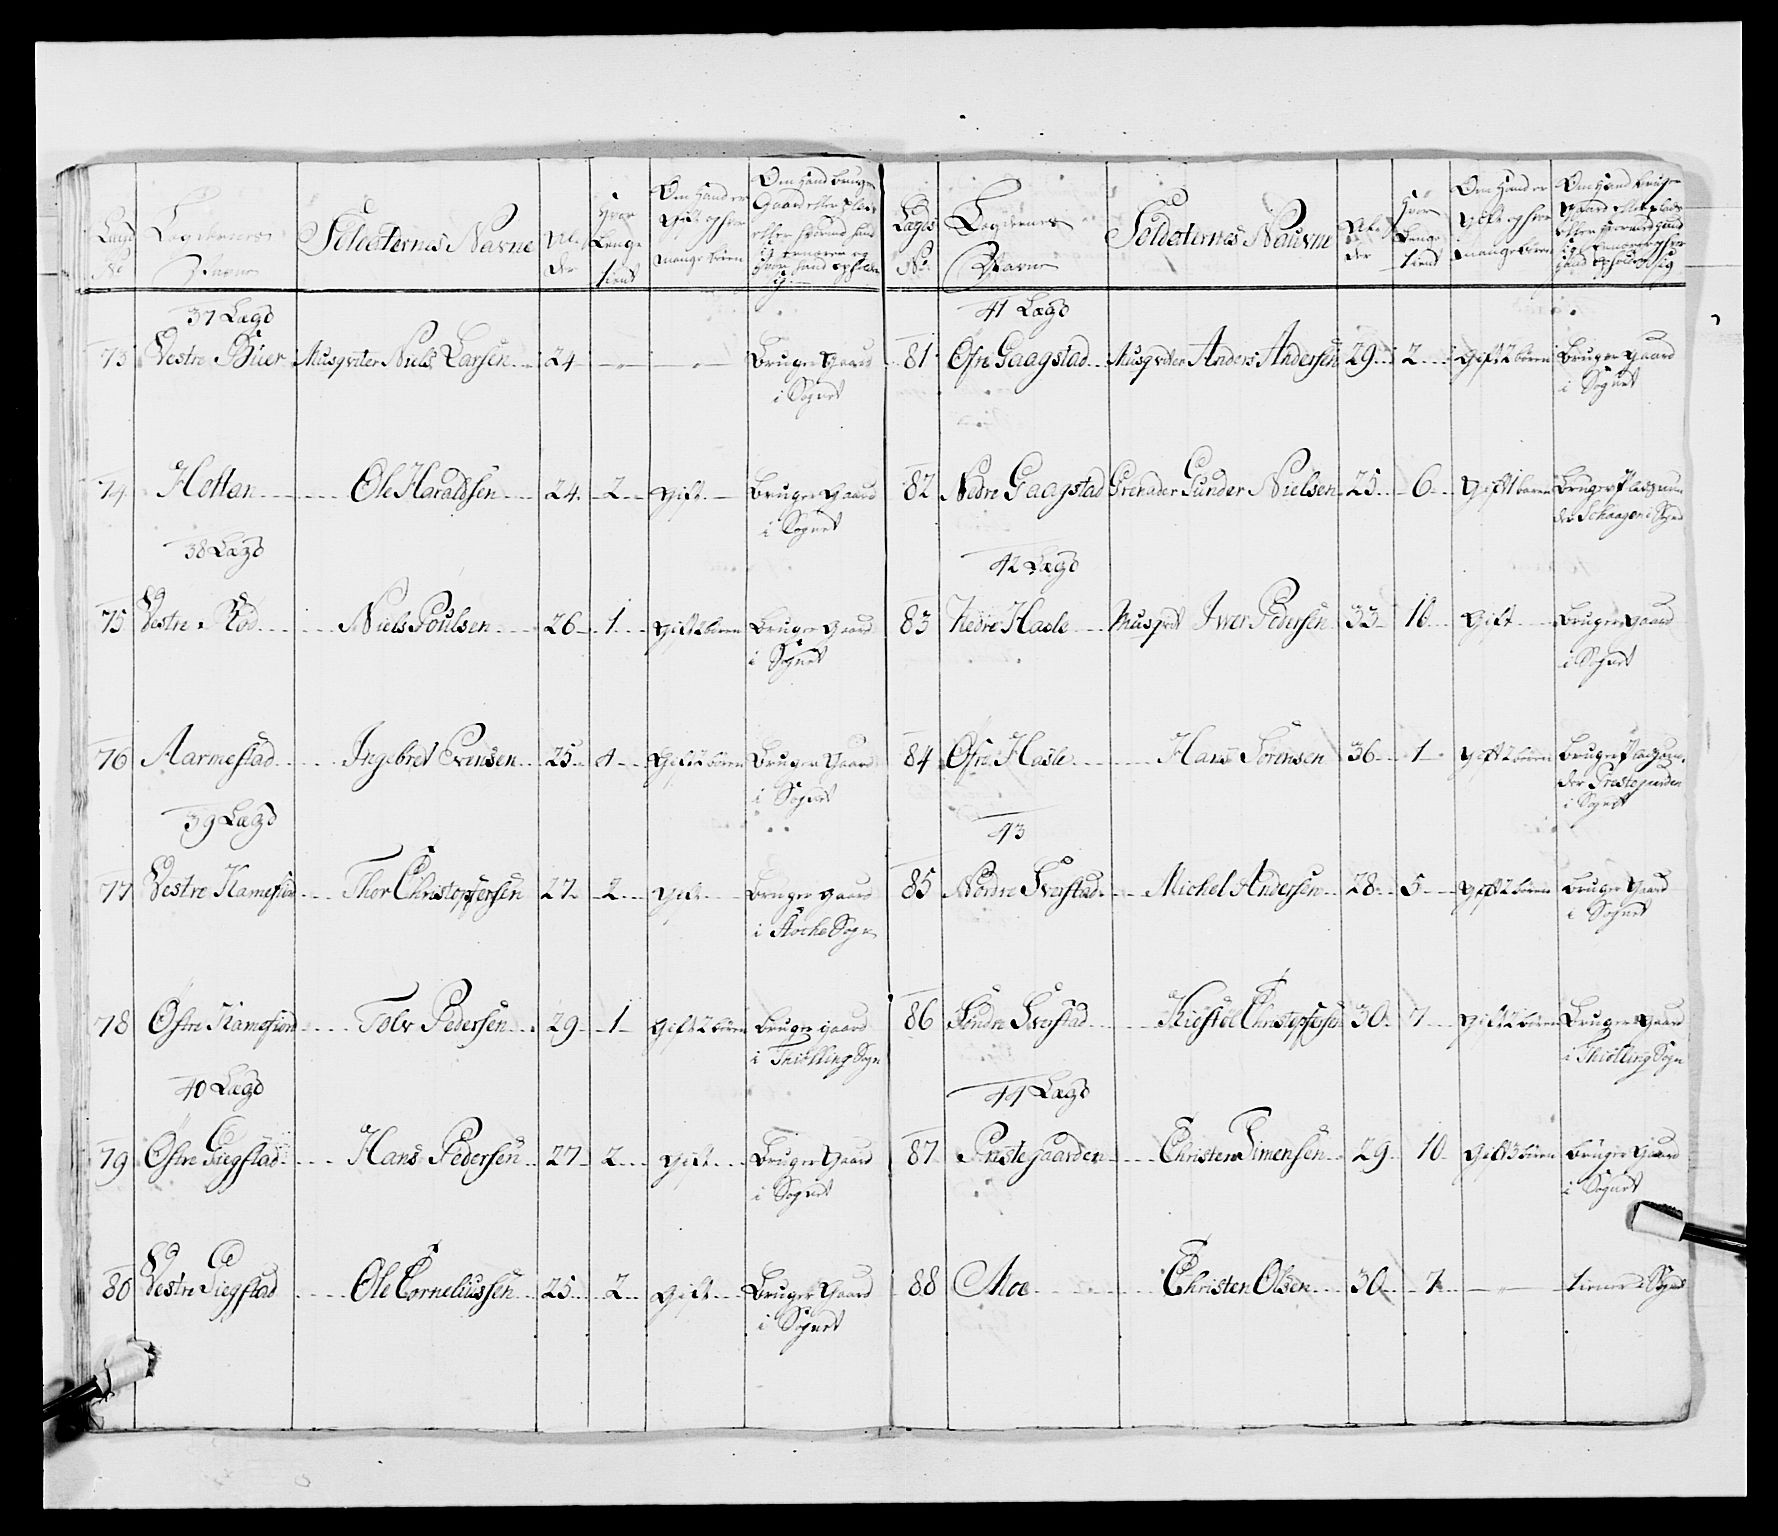 Lægd
No
Lægdernes
Navne
Soldaternes Navne
Al-
der
Hvor
Længe
tient
Om Hand er
Gift og hvor
mange børn
Om Hand bruger
Gaard eller plads
eller hvorved hand
37 Lægd
73 Vestre Büer Musqveter Niels Larsen 24 Bruger Gaard
i Sognet
74 Hollan Ole Haraldsen 24 2 gift Bruger Gaard
i Sognet
38 Lægd
75 Vestre Röd Niels Poulsen 26 1 gift 2 børn Bruger Gaard
i Sognet
76 Aarmestad Ingebret Evensen 25 4 Gift 2 børn Bruger Gaard
i Sognet
39 Lægd
77 Vestre Hamefiord Thor Christophersen 27 2 gift Bruger gaard
i Stocke Sogn
78 Østre Hamefiord Tolv Pedersen 29 1 gift 2 børn Bruger gaard
i Thiölling Sogn
40 Lægd
79 Østre Giegstad Hans Pedersen 27 2 gift Bruger Gaard
i Sognet
80 Vestre Giegstad Ole Corneliussen 25 2 gift Bruger Gaard
i Sognet
Lægds
No
Lægdernes
Navne
Soldaternes Naune
Al-
der
Hvor
Længe
tient
Om Hand er
Gift og hvor
mange børn
Om Hand bruger
Gaard eller plads
eller hvorved hand
41 Lægd
81 Øfre Gaagstad Musqveter Anders Andersen 29 2 gift 2 børn Bruger gaard
i Sognet
82 Nedre Gaagstad Grenader Gunder Nielsen 25 6 Gift 1 baren Bruger Plads un
der Schaagen i Sogned
42 Lægd
83 Nedre Hasle Musqvt Iwer Pedersen 33 10 gift Bruger gaard
i Sognet
84 Øfre Hasle Hans Sörensen 36 1 gift 2 børn Bruger Plads un-
der Prestegaarden
i Sognet
43
85 Nordre Sverstad Michel Andersen 28 5 gift 2 børn Bruger Gaard
i Sognet
86 Söndre Sverstad Kiestel Christophersen 30 7 gift 2 børn Bruger Gaard
i Thiölling Sogn
44 Lægd
87 Prestegaarden Christen Simensen 29 10 gift 3 børn Bruger Gaard
i Sognet
88 Moe Christen Olsen 30 7 tiener i Sognet